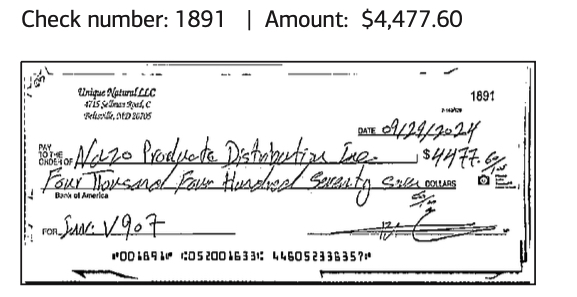 Check number: 1891 | Amount: $4,477.60
Unique Natural LLC
4715 Sellman Road, C
Beltsville, MD 20705
1891
DATE 09/29/2024
PAY TO THE ORDER OF Nazo Products Distribution Inc. $4477.60/100
Four Thousand Four Hundred Seventy Seven 60/100 DOLLARS
Bank of America
FOR Inv: V907
⑈001891⑈ ⑆052001633⑆ 446052338357⑈